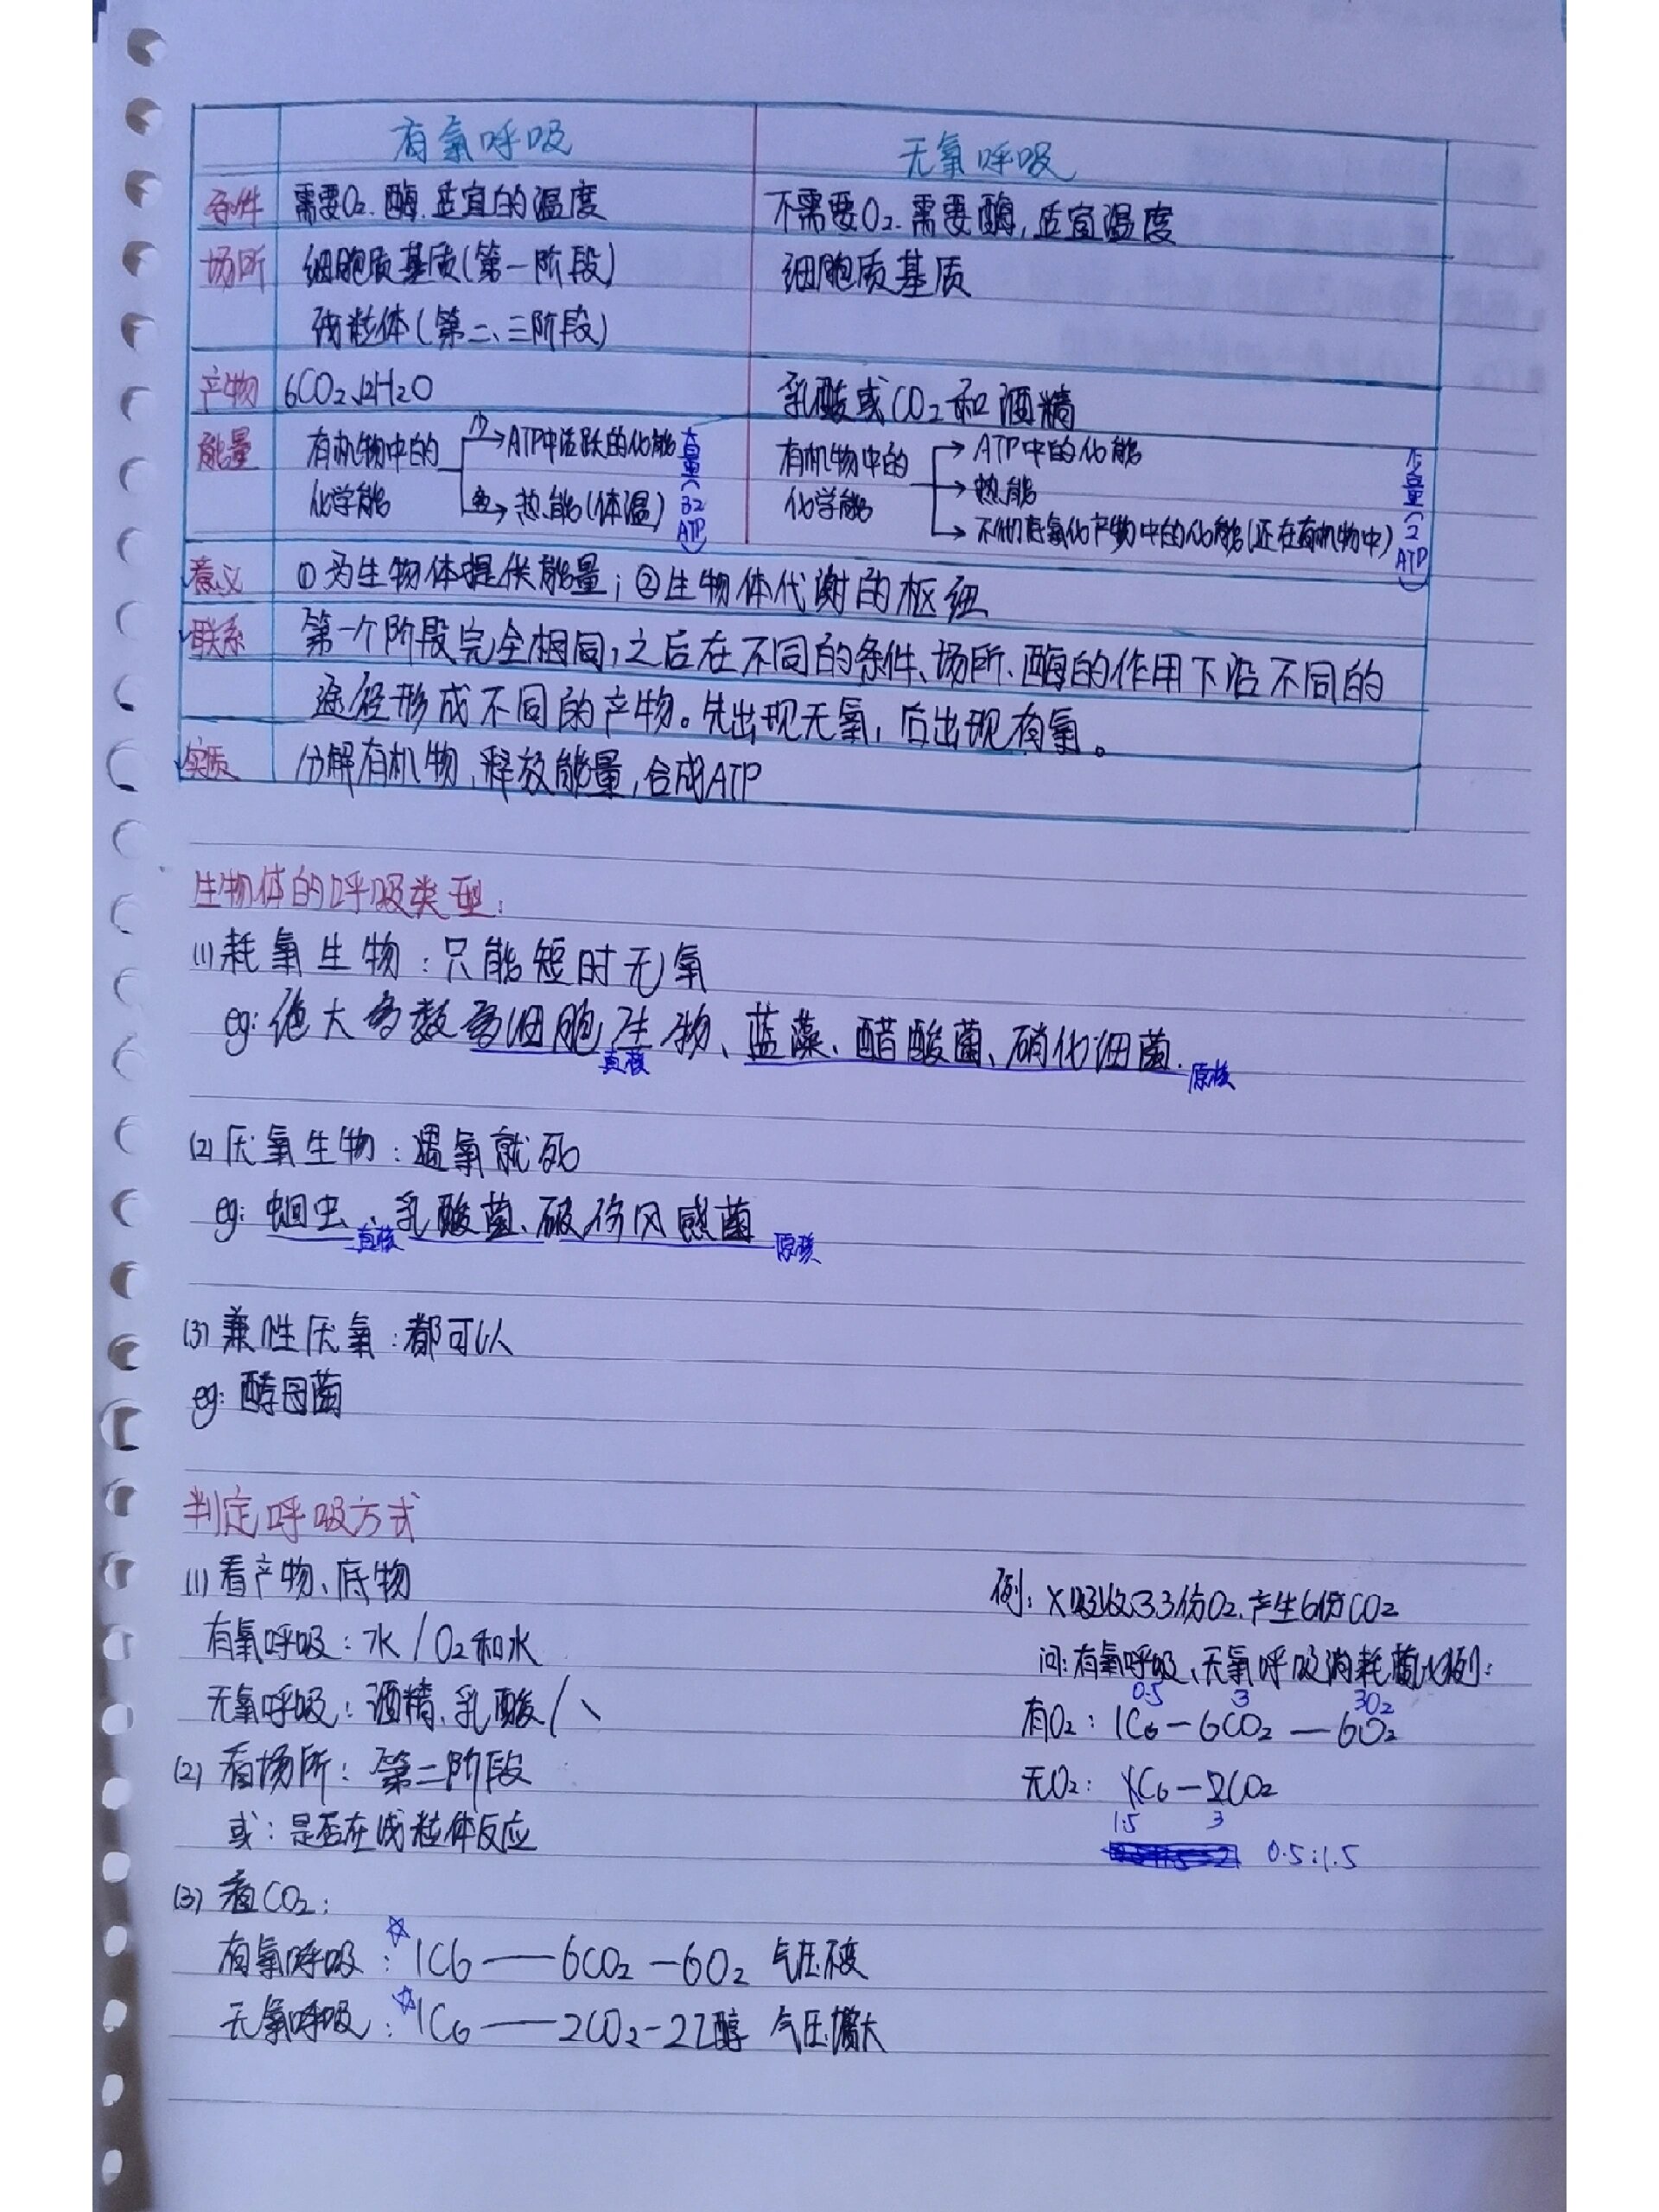 有氧呼吸 无氧呼吸
条件 需要O₂、酶、适宜的温度 不需要O₂、需要酶,适宜温度
场所 细胞质基质(第一阶段) 细胞质基质
线粒体(第二、三阶段)
产物 6CO₂、12H₂O 乳酸或CO₂和酒精
能量 有机物中的化学能 少→ATP中活跃的化能 大量(32ATP)
多→热能(体温)
有机物中的化学能 →ATP中的化能 少量(2ATP)
→热能
→不彻底氧化产物中的化能(还在有机物中)
意义 ①为生物体提供能量;②生物体代谢的枢纽
联系 第一个阶段完全相同,之后在不同的条件、场所、酶的作用下沿不同的
途径形成不同的产物。先出现无氧,后出现有氧。
实质 分解有机物,释放能量,合成ATP
生物体的呼吸类型:
(1)耗氧生物:只能短时无氧
eg:绝大多数多细胞生物、蓝藻、醋酸菌、硝化细菌.
真核 原核
(2)厌氧生物:遇氧就死
eg:蛔虫、乳酸菌、破伤风感菌
真核 原核
(3)兼性厌氧:都可以
eg:酵母菌
判定呼吸方式
(1)看产物、底物
有氧呼吸:水/O₂和水
无氧呼吸:酒精、乳酸/\
(2)看场所:第二阶段
或:是否在线粒体反应
(3)看CO₂:
有氧呼吸:☆1C6——6CO₂—6O₂ 气压不变
无氧呼吸:☆1C6——2CO₂-2乙醇 气压增大
例:X吸收3份O₂,产生6份CO₂
问:有氧呼吸、无氧呼吸消耗葡比例:
0.5 3 3O₂
有O₂:1C6—6CO₂—6O₂
无O₂:1C6—2CO₂
1.5 3
0.5:1.5